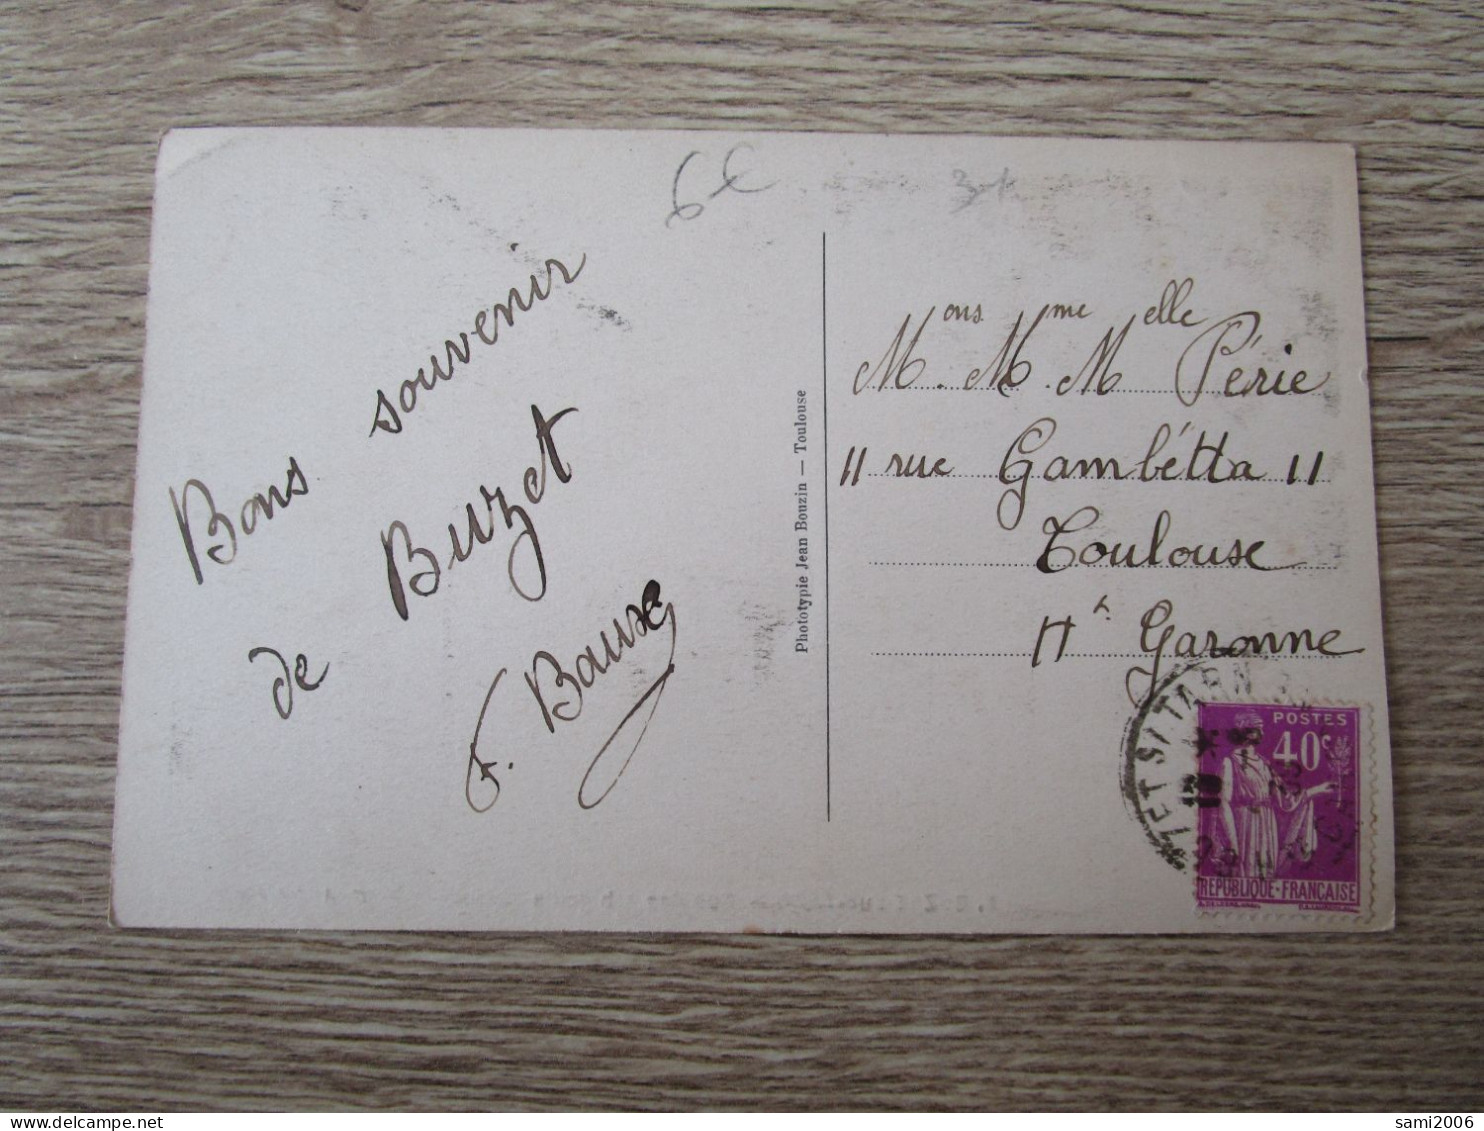 6€
Bons souvenir
de Buzet
F. Baux
Phototypie Jean Bouzin — Toulouse
Mons. Mme. Melle Périe
11 rue Gambétta 11
Toulouse
Hte Garonne
ZET S/ TARN
POSTES
40c
REPUBLIQUE-FRANÇAISE
sami2006